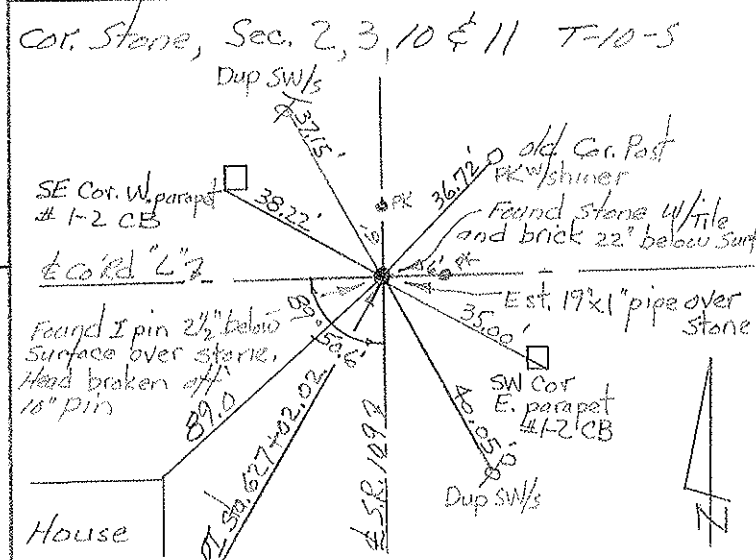 Cor. Stone, Sec. 2, 3, 10 & 11 T-10-S
Dup SW/s
37.15'
SE Cor. W. parapet
# 1-2 CB
38.22'
PK
36.72'
old Cor. Post
PK W/shiner
Found Stone W/Tile
and brick 22" below Surf
℄ Co Rd "L"
6'
6'
PK
Est. 19"x1" pipe over
stone
89° 50.6'
Found I pin 2½" below
Surface over stone.
Head broken off
10" pin
89.0
35.00'
SW Cor
E. parapet
#1-2 CB
40.05'
Dup SW/s
PI Sta. 627+02.02
℄ S.R. 109
House
N